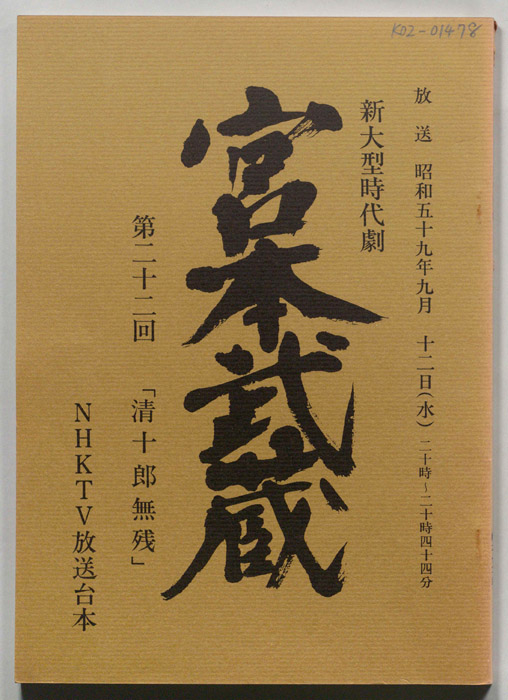 K02-01478
放送 昭和五十九年九月 十二日(水) 二十時~二十時四十四分
新大型時代劇
宮本武蔵
第二十二回 「清十郎無残」
NHKTV放送台本